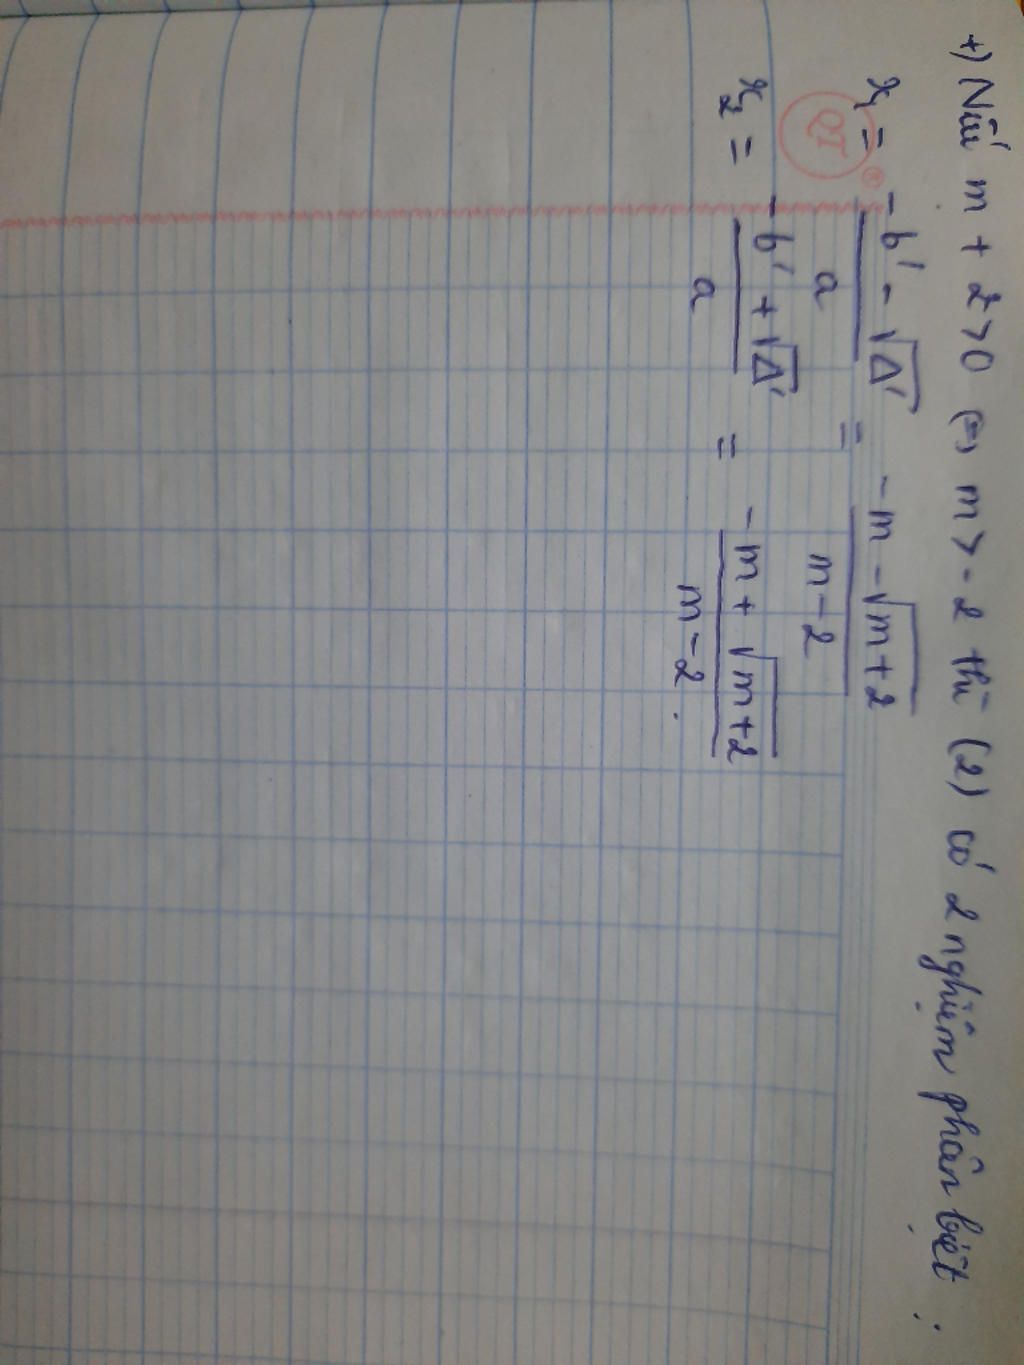 +) Nếu m + 2 > 0 (=) m > -2 thì (2) có 2 nghiệm phân biệt :
x₁ = (-b' - √Δ')/a = (-m - √(m+2))/(m-2)
QT ®
x₂ = (-b' + √Δ')/a = (-m + √(m+2))/(m-2).